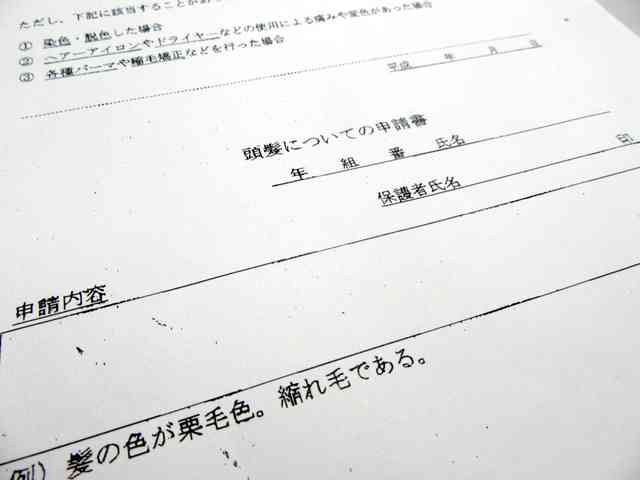 ただし、下記に該当することがあ
① 染色・脱色した場合
② ヘアーアイロンやドライヤーなどの使用による痛みや変色があった場合
③ 各種パーマや縮毛矯正などを行った場合
平成 年 月 日
頭髪についての申請書
年 組 番 氏名
保護者氏名 印
申請内容
例）髪の色が栗毛色。縮れ毛である。